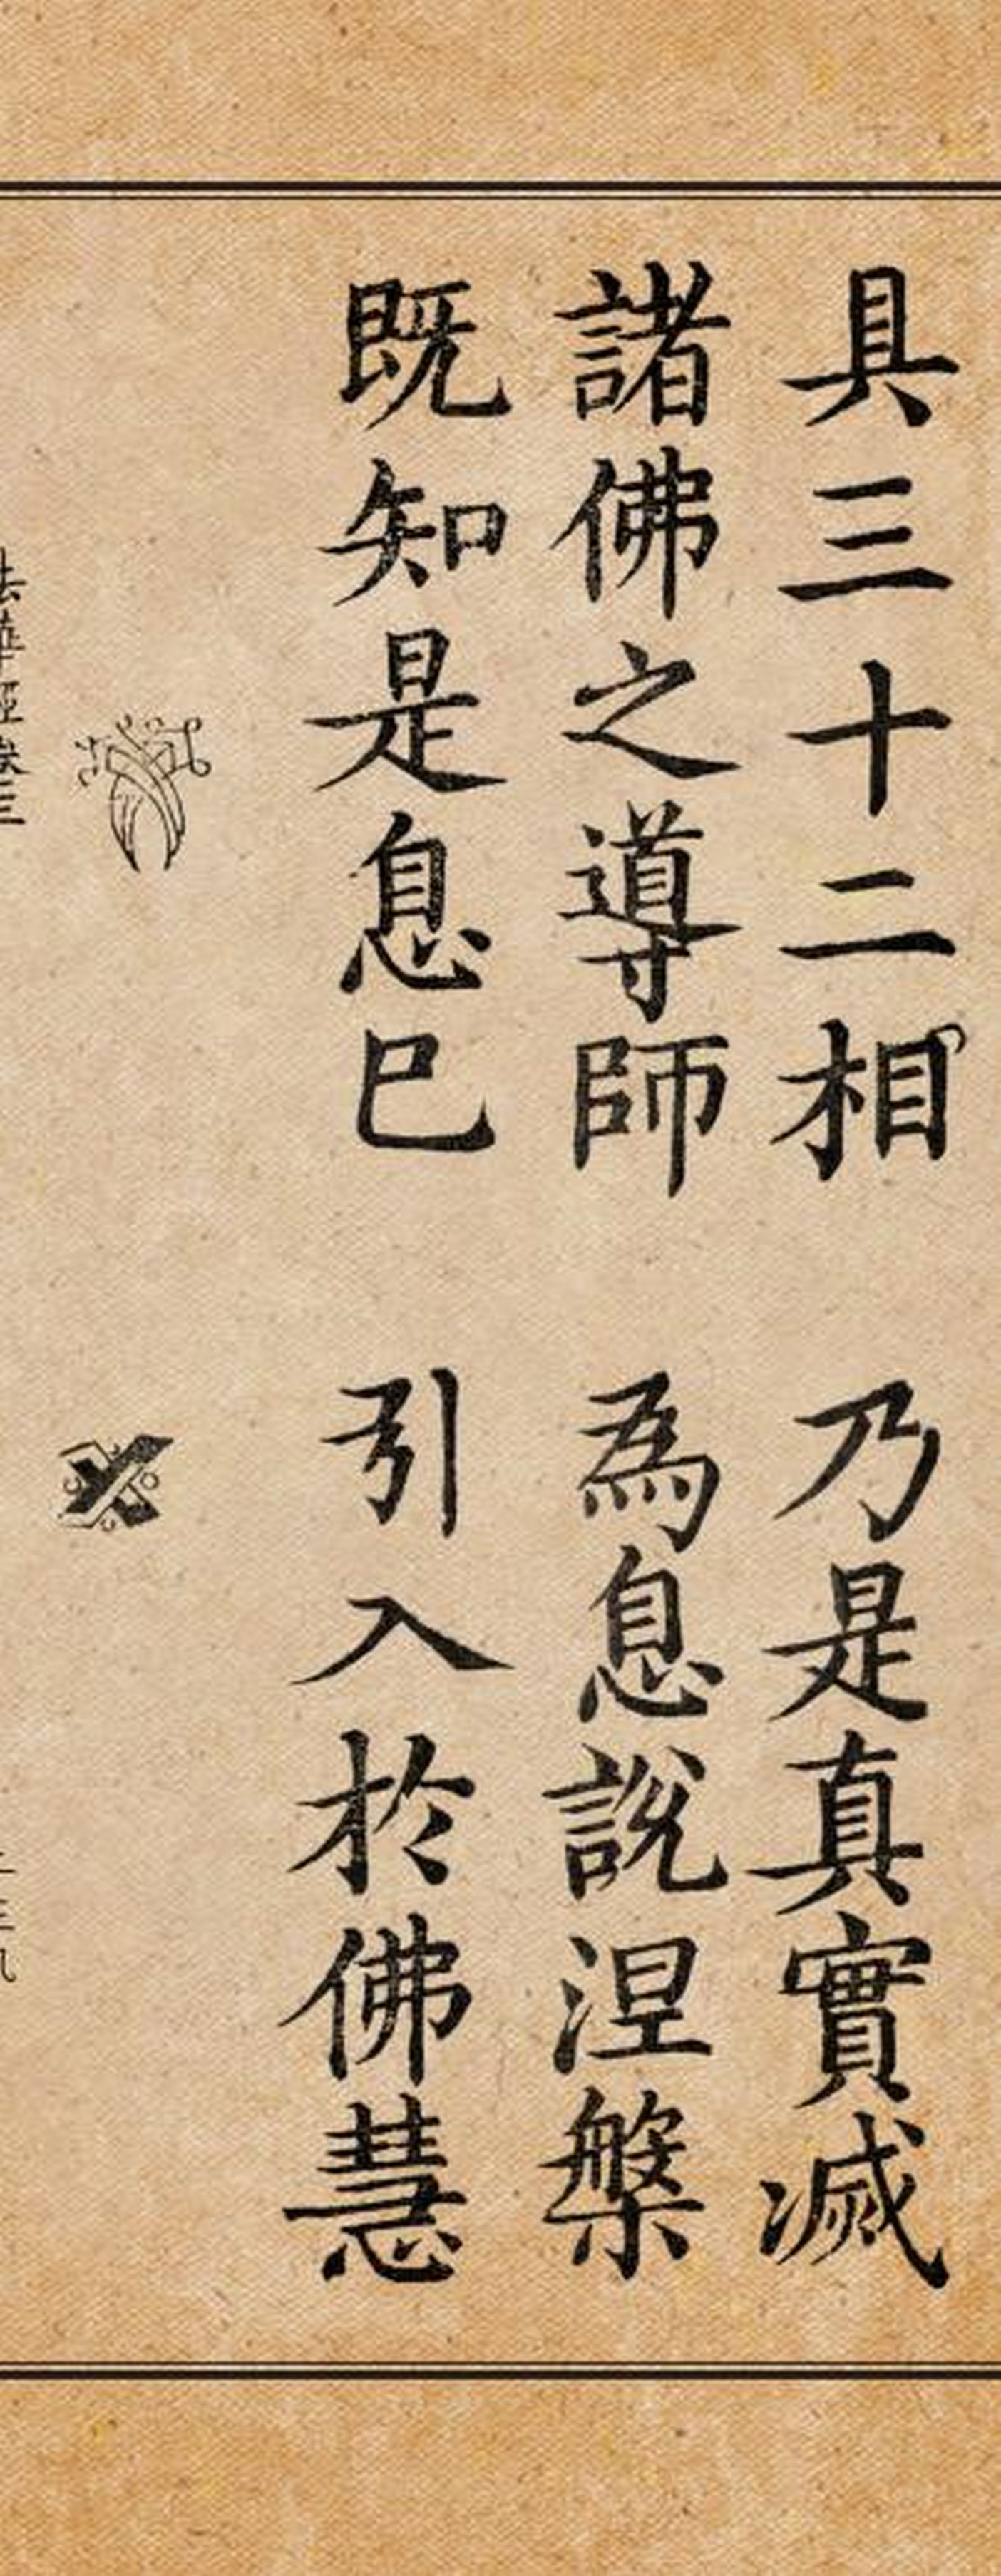 具三十二相　乃是真實滅
諸佛之導師　為息說涅槃
既知是息已　引入於佛慧
法華經卷三
二三九